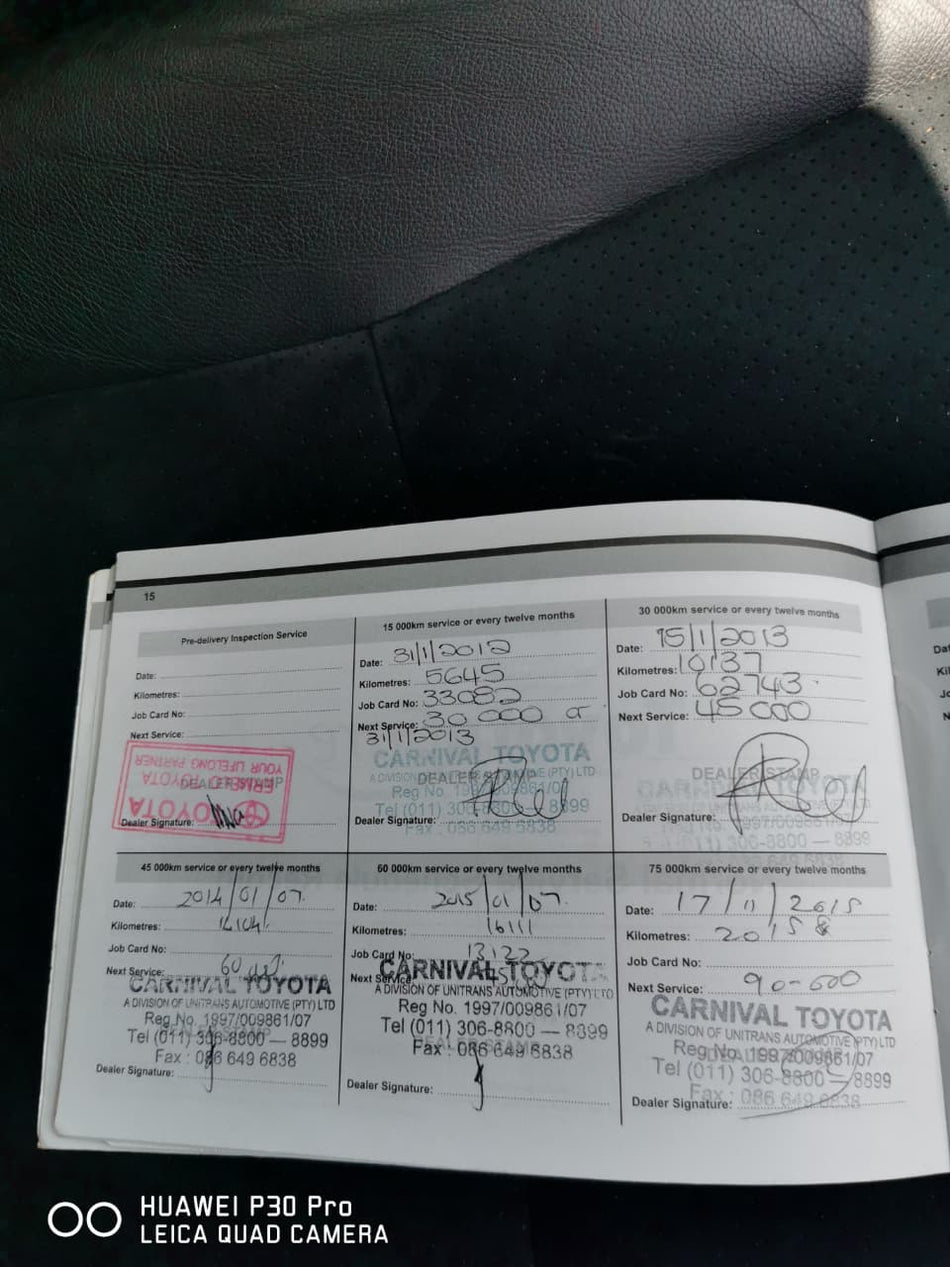 15
Pre-delivery Inspection Service
Date:
Kilometres:
Job Card No:
Next Service:
TOYOTA
YOUR LIFELONG PARTNER
DEALER STAMP
Dealer Signature:
15 000km service or every twelve months
Date: 31/1/2012
Kilometres: 5645
Job Card No: 33082
Next Service: 30 000 or
31/1/2013
CARNIVAL TOYOTA
A DIVISION DEALER STAMP (PTY) LTD
Reg No. 1997
Tel (011) 306-8800 — 8899
Dealer Signature:
Fax : 086 649 6838
30 000km service or every twelve months
Date: 15/1/2013
Kilometres: 10137
Job Card No: 62743
Next Service: 45 000
DEALER STAMP
Dealer Signature:
306-8800 — 8899
45 000km service or every twelve months
Date: 2014/01/07
Kilometres:
Job Card No:
Next Service:
CARNIVAL TOYOTA
A DIVISION OF UNITRANS AUTOMOTIVE (PTY) LTD
Reg No. 1997/009861/07
Tel (011) 306-8800 — 8899
Fax : 086 649 6838
Dealer Signature:
60 000km service or every twelve months
Date: 2015/01/07
Kilometres: 16111
Job Card No: 13122
Next Service:
CARNIVAL TOYOTA
A DIVISION OF UNITRANS AUTOMOTIVE (PTY) LTD
Reg No. 1997/009861/07
Tel (011) 306-8800 — 8899
Fax : 086 649 6838
Dealer Signature:
75 000km service or every twelve months
Date: 17/11/2015
Kilometres: 20158
Job Card No:
Next Service: 90-000
CARNIVAL TOYOTA
A DIVISION OF UNITRANS AUTOMOTIVE (PTY) LTD
Reg No. 1997/009861/07
Tel (011) 306-8800 — 8899
Fax : 086 649 6838
Dealer Signature:
HUAWEI P30 Pro
LEICA QUAD CAMERA